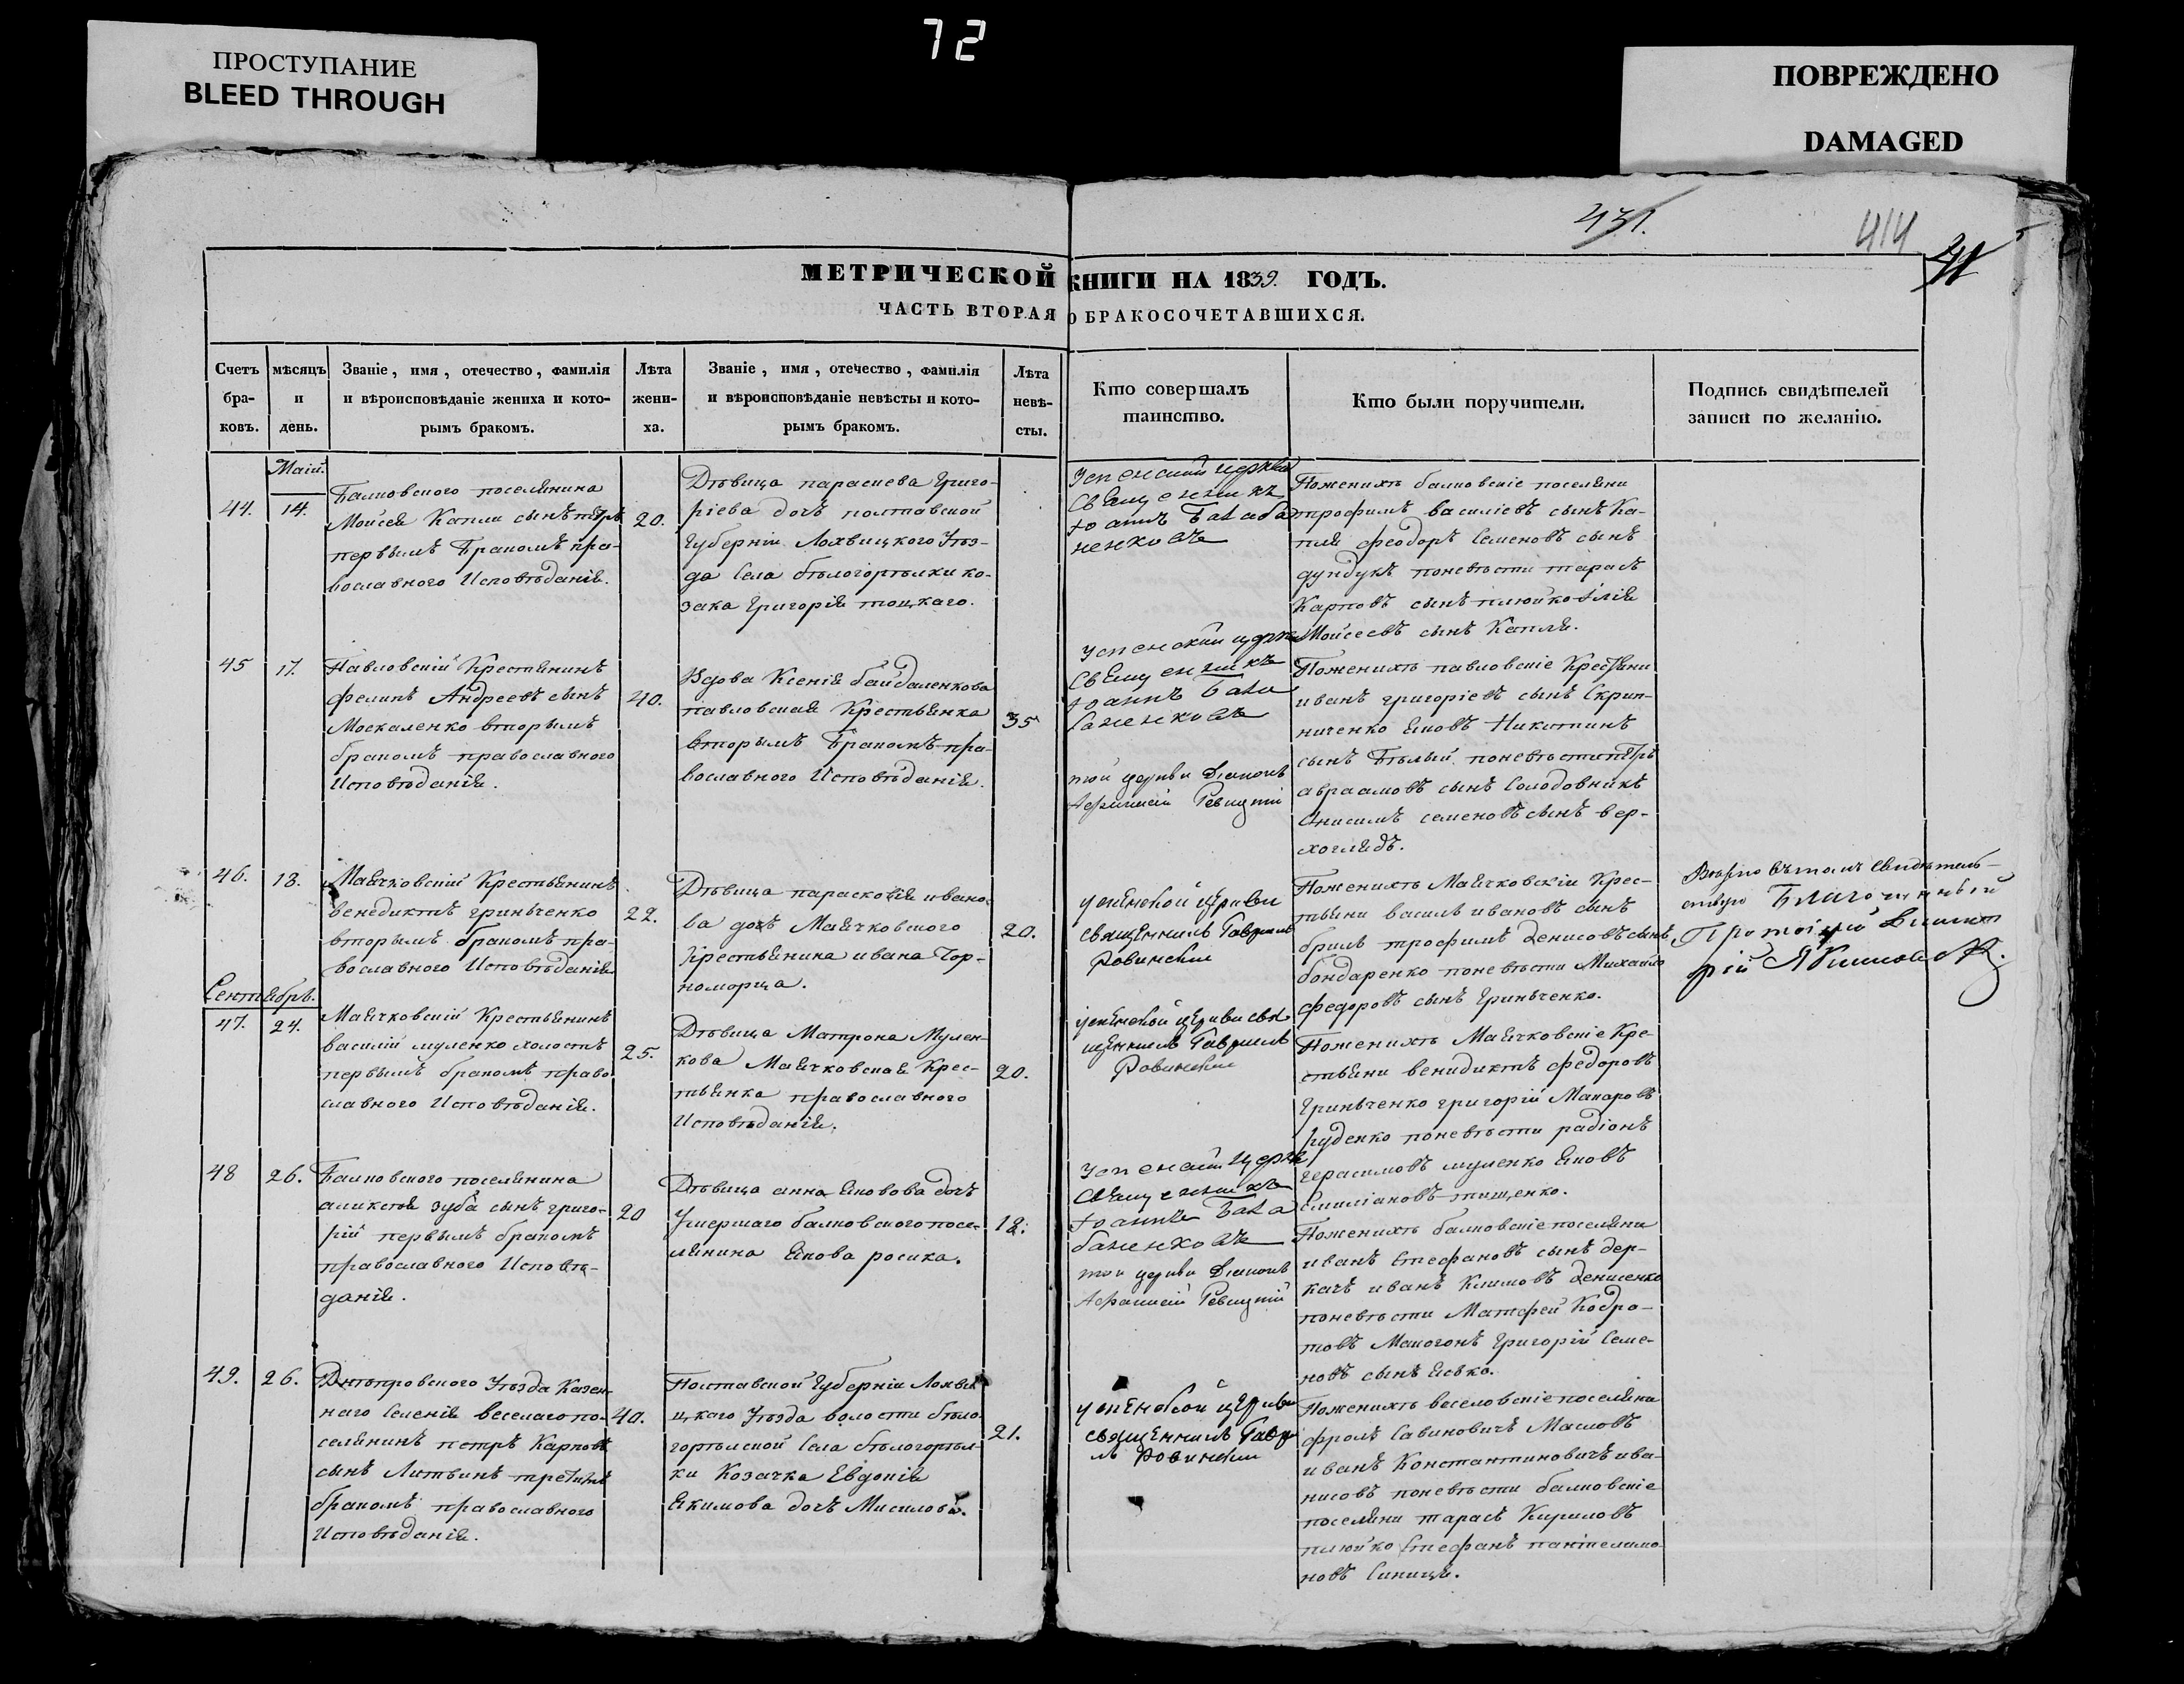 72
ПРОСТУПАНИЕ
BLEED THROUGH
ПОВРЕЖДЕНО
DAMAGED
431.
414
МЕТРИЧЕСКОЙ КНИГИ НА 1839. ГОДЪ.
ЧАСТЬ ВТОРАЯ О БРАКОСОЧЕТАВШИХСЯ.
Счетъ
бра-
ковъ.
мѣсяцъ
и
день.
Званіе, имя, отечество, фамилія
и вѣроисповѣданіе жениха и кото-
рымъ бракомъ.
Лѣта
жени-
ха.
Званіе, имя, отечество, фамилія
и вѣроисповѣданіе невѣсты и кото-
рымъ бракомъ.
Лѣта
невѣ-
сты.
Кто совершалъ
таинство.
Кто были поручители.
Подпись свидѣтелей
записи по желанію.
Маій.
44.
14.
Балковского поселянина
Мойсея Капли сынъ петръ
первымъ бракомъ пра-
вославного Исповѣданія.
20.
Дѣвица параскева Григо-
ріева дочь полтавской
Губерніи Лохвицкого Уѣз-
да Села бѣлогорѣлки ко-
зака Григорія тоцкаго.
Успенский церкви
Священникъ
Іоаннъ
Поженихѣ балковскіе поселяни
трофимъ василіевъ сынъ Ка-
пля феодоръ Семеновъ сынъ
дундукъ поневѣсти тарасъ
Карповъ сынъ плюйко Илія
Мойсеевъ сынъ Капля.
45
17.
Павловскій Крестянинъ
филипъ Андреевъ сынъ
Москаленко вторымъ
бракомъ православного
Исповѣданія.
40.
Вдова Ксенія байдаленкова
павловская Крестьянка
вторымъ бракомъ пра-
вославного Исповѣданія.
35
Успенский церкви
Священникъ
Іоаннъ
той церкви Діаконъ
Афанасій Левицкій
Поженихѣ павловскіе Крестяни
иванъ григоріевъ сынъ Скрип-
ниченко Яковъ Никитинъ
сынъ Бѣлый поневѣсти петръ
авраамовъ сынъ Солодовникъ
Онисимъ семеновъ сынъ вер-
хоглядъ.
46.
18.
Маячковскій Крестьянинъ
венедиктъ гринченко
вторымъ бракомъ пра-
вославного Исповѣданія
22.
Дѣвица параскофія ивано-
ва дочь Маячковского
Крестьянина ивана Чор-
номорца.
20.
успенской церкви
священникъ Гавриилъ
Ровинский
Поженихѣ Маячковскіи Крес-
тьяни василъ ивановъ сынъ
бриль трофимъ денисовъ сынъ
бондаренко поневѣсти Михайло
федоровъ сынъ Гринченко.
Протоіерей Димит
рій
Сентябрь.
47.
24.
Маячковскій Крестьянинъ
василій муленко холостъ
первымъ бракомъ право
славного Исповѣданія.
25.
Дѣвица Матрона Мулен-
кова Маячковская Крес-
тьянка православного
Исповѣданія.
20.
успенской церкви свя
щенникъ Гавриилъ
Ровинский
Поженихѣ Маячковскіе Кре
стьяни венидиктъ федоровъ
Гринченко григорій Макаровъ
руденко поневѣсти радіонъ
герасимовъ муленко Яковъ
Емиліановъ тищенко.
48
26.
Балковского поселянина
алексѣя зуба сынъ григо-
рій первымъ бракомъ
православного Исповѣ-
данія.
20
Дѣвица анна Яковова дочь
Умершаго балковского посе-
лянина Якова росика.
18.
Успенский церкви
Священникъ
Іоаннъ
той церкви Діаконъ
Афанасій Левицкій
Поженихѣ балковскіе поселяни
иванъ Стефановъ сынъ дер-
качъ иванъ Климовъ денисенко
поневѣсти Матфей Кодра-
товъ Макогонъ Григорій Семе-
новъ сынъ
49.
26.
Днѣпровского Уѣзда Казен-
наго Селенія веселаго по-
селянинъ петръ Карповъ
сынъ Литвинъ третимъ
бракомъ православного
Исповѣданія.
40.
Полтавской Губерніи Лохви
цкаго Уѣзда волости бѣло
горѣлской Села бѣлогорѣл-
ки Козачка Евдокія
Якимова дочь Мисилова.
21.
успенской церкви
священникъ Гаври
лъ Ровинский
Поженихѣ веселовскіе поселяни
фролъ Савиновичъ Масловъ
иванъ Константиновичъ ива-
нисовъ поневѣсти балковскіе
поселяни тарасъ Кириловъ
плюйко Стефанъ пантелимо
новъ Синиця.